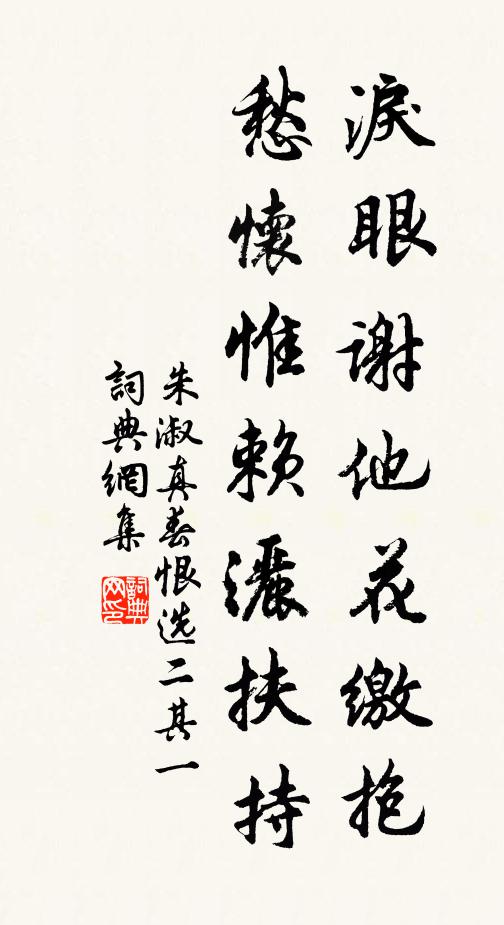 淚眼謝他花繳抱
愁懷惟賴灑扶持
朱淑真春恨选二其一
詞典網集
詞典网印